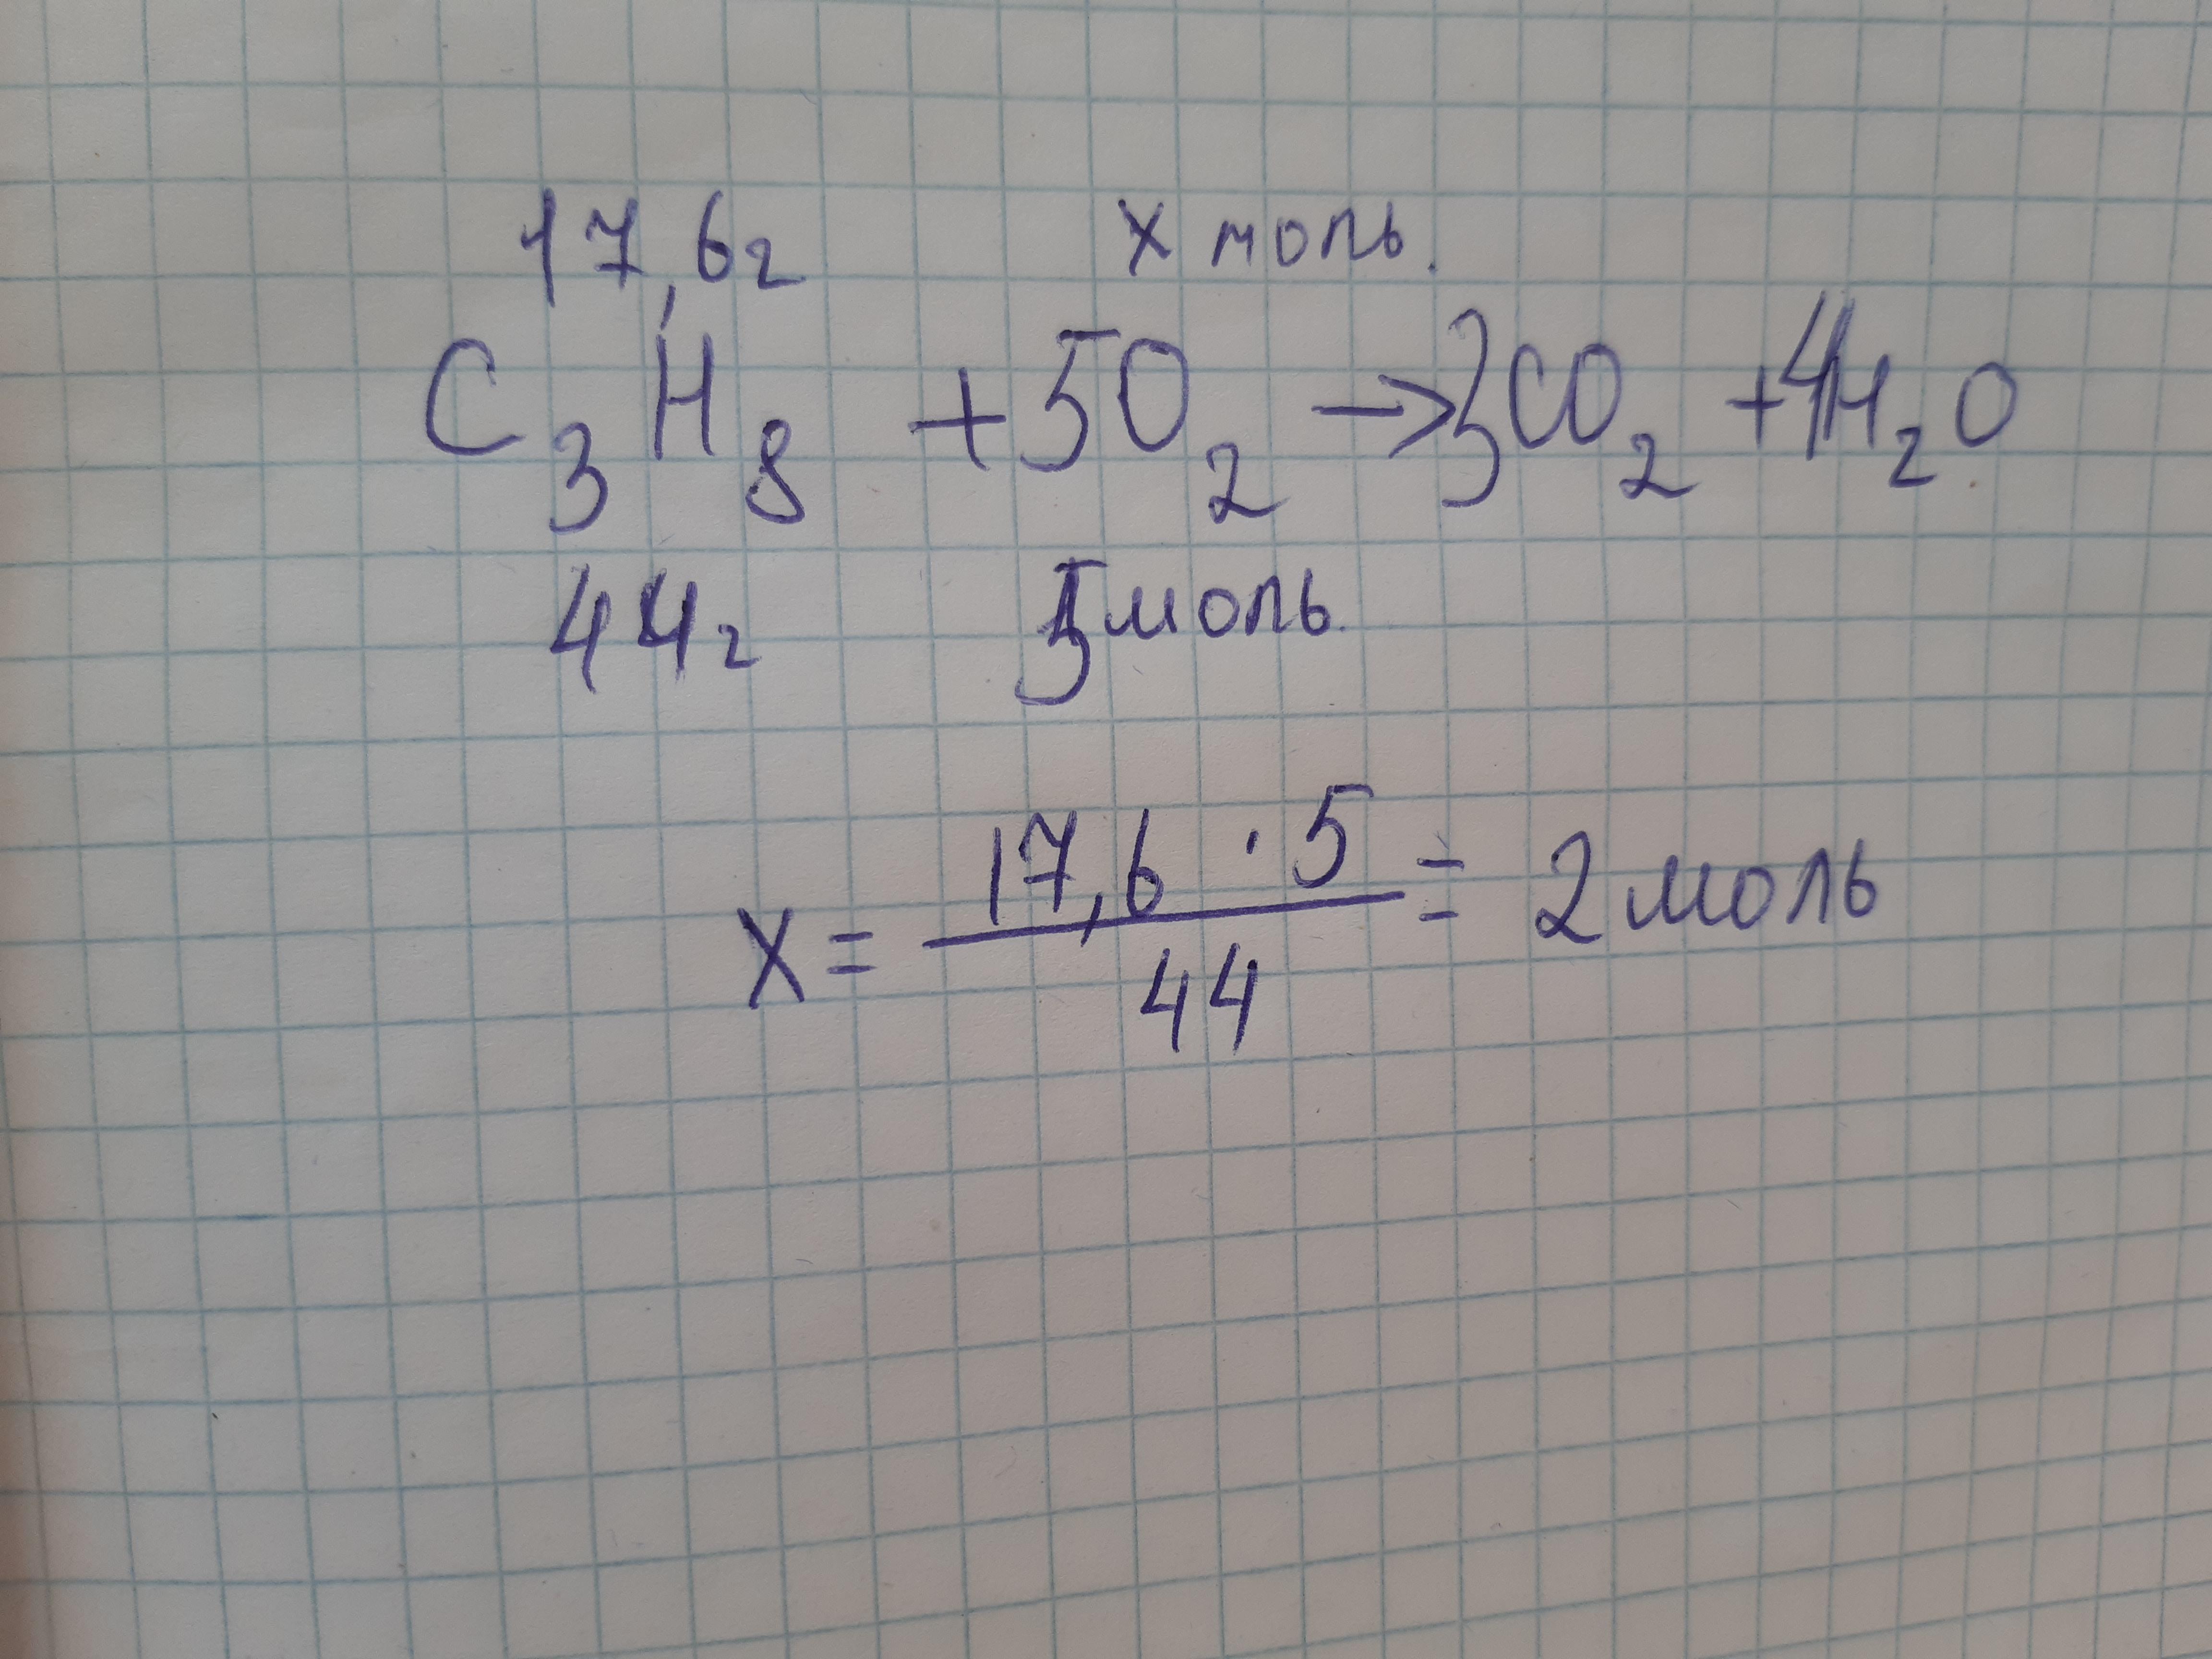 17,6г х моль.
C₃H₈ + 5O₂ → 3CO₂ + 4H₂O
44г 5 моль.
х = (17,6 · 5) / 44 = 2 моль